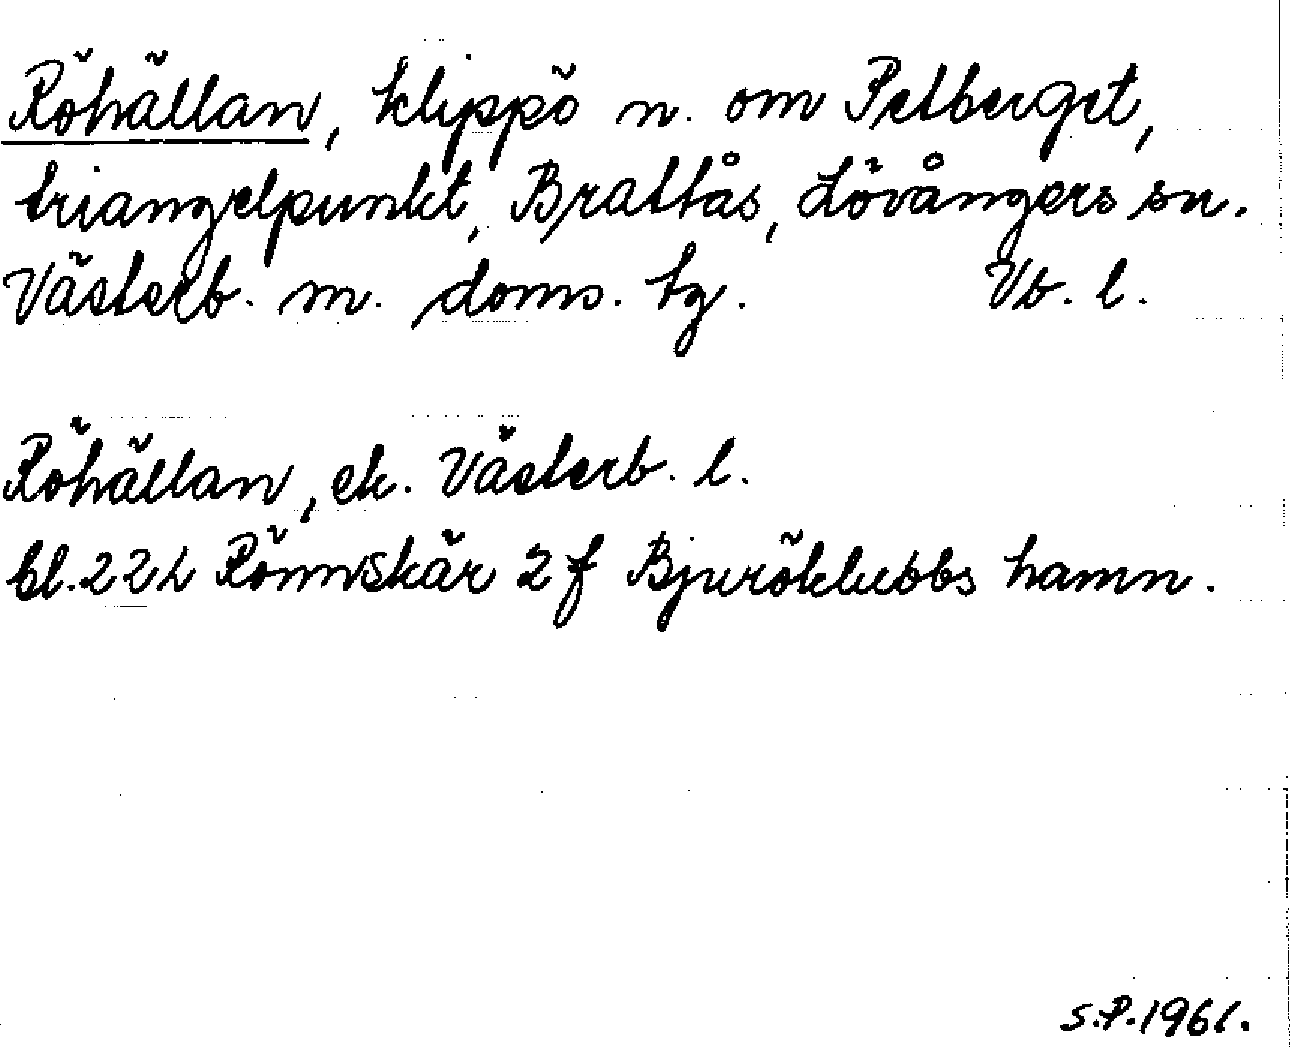 Röhällan, klippö n. om Petberget,
triangelpunkt, Brattås, Lövångers sn.
Västerb. m. doms. tg. Vb. l.
Röhällan, ek. Västerb. l.
bl. 22L Rönnskär 2f Bjuröklubbs hamn.
S.P. 1961.